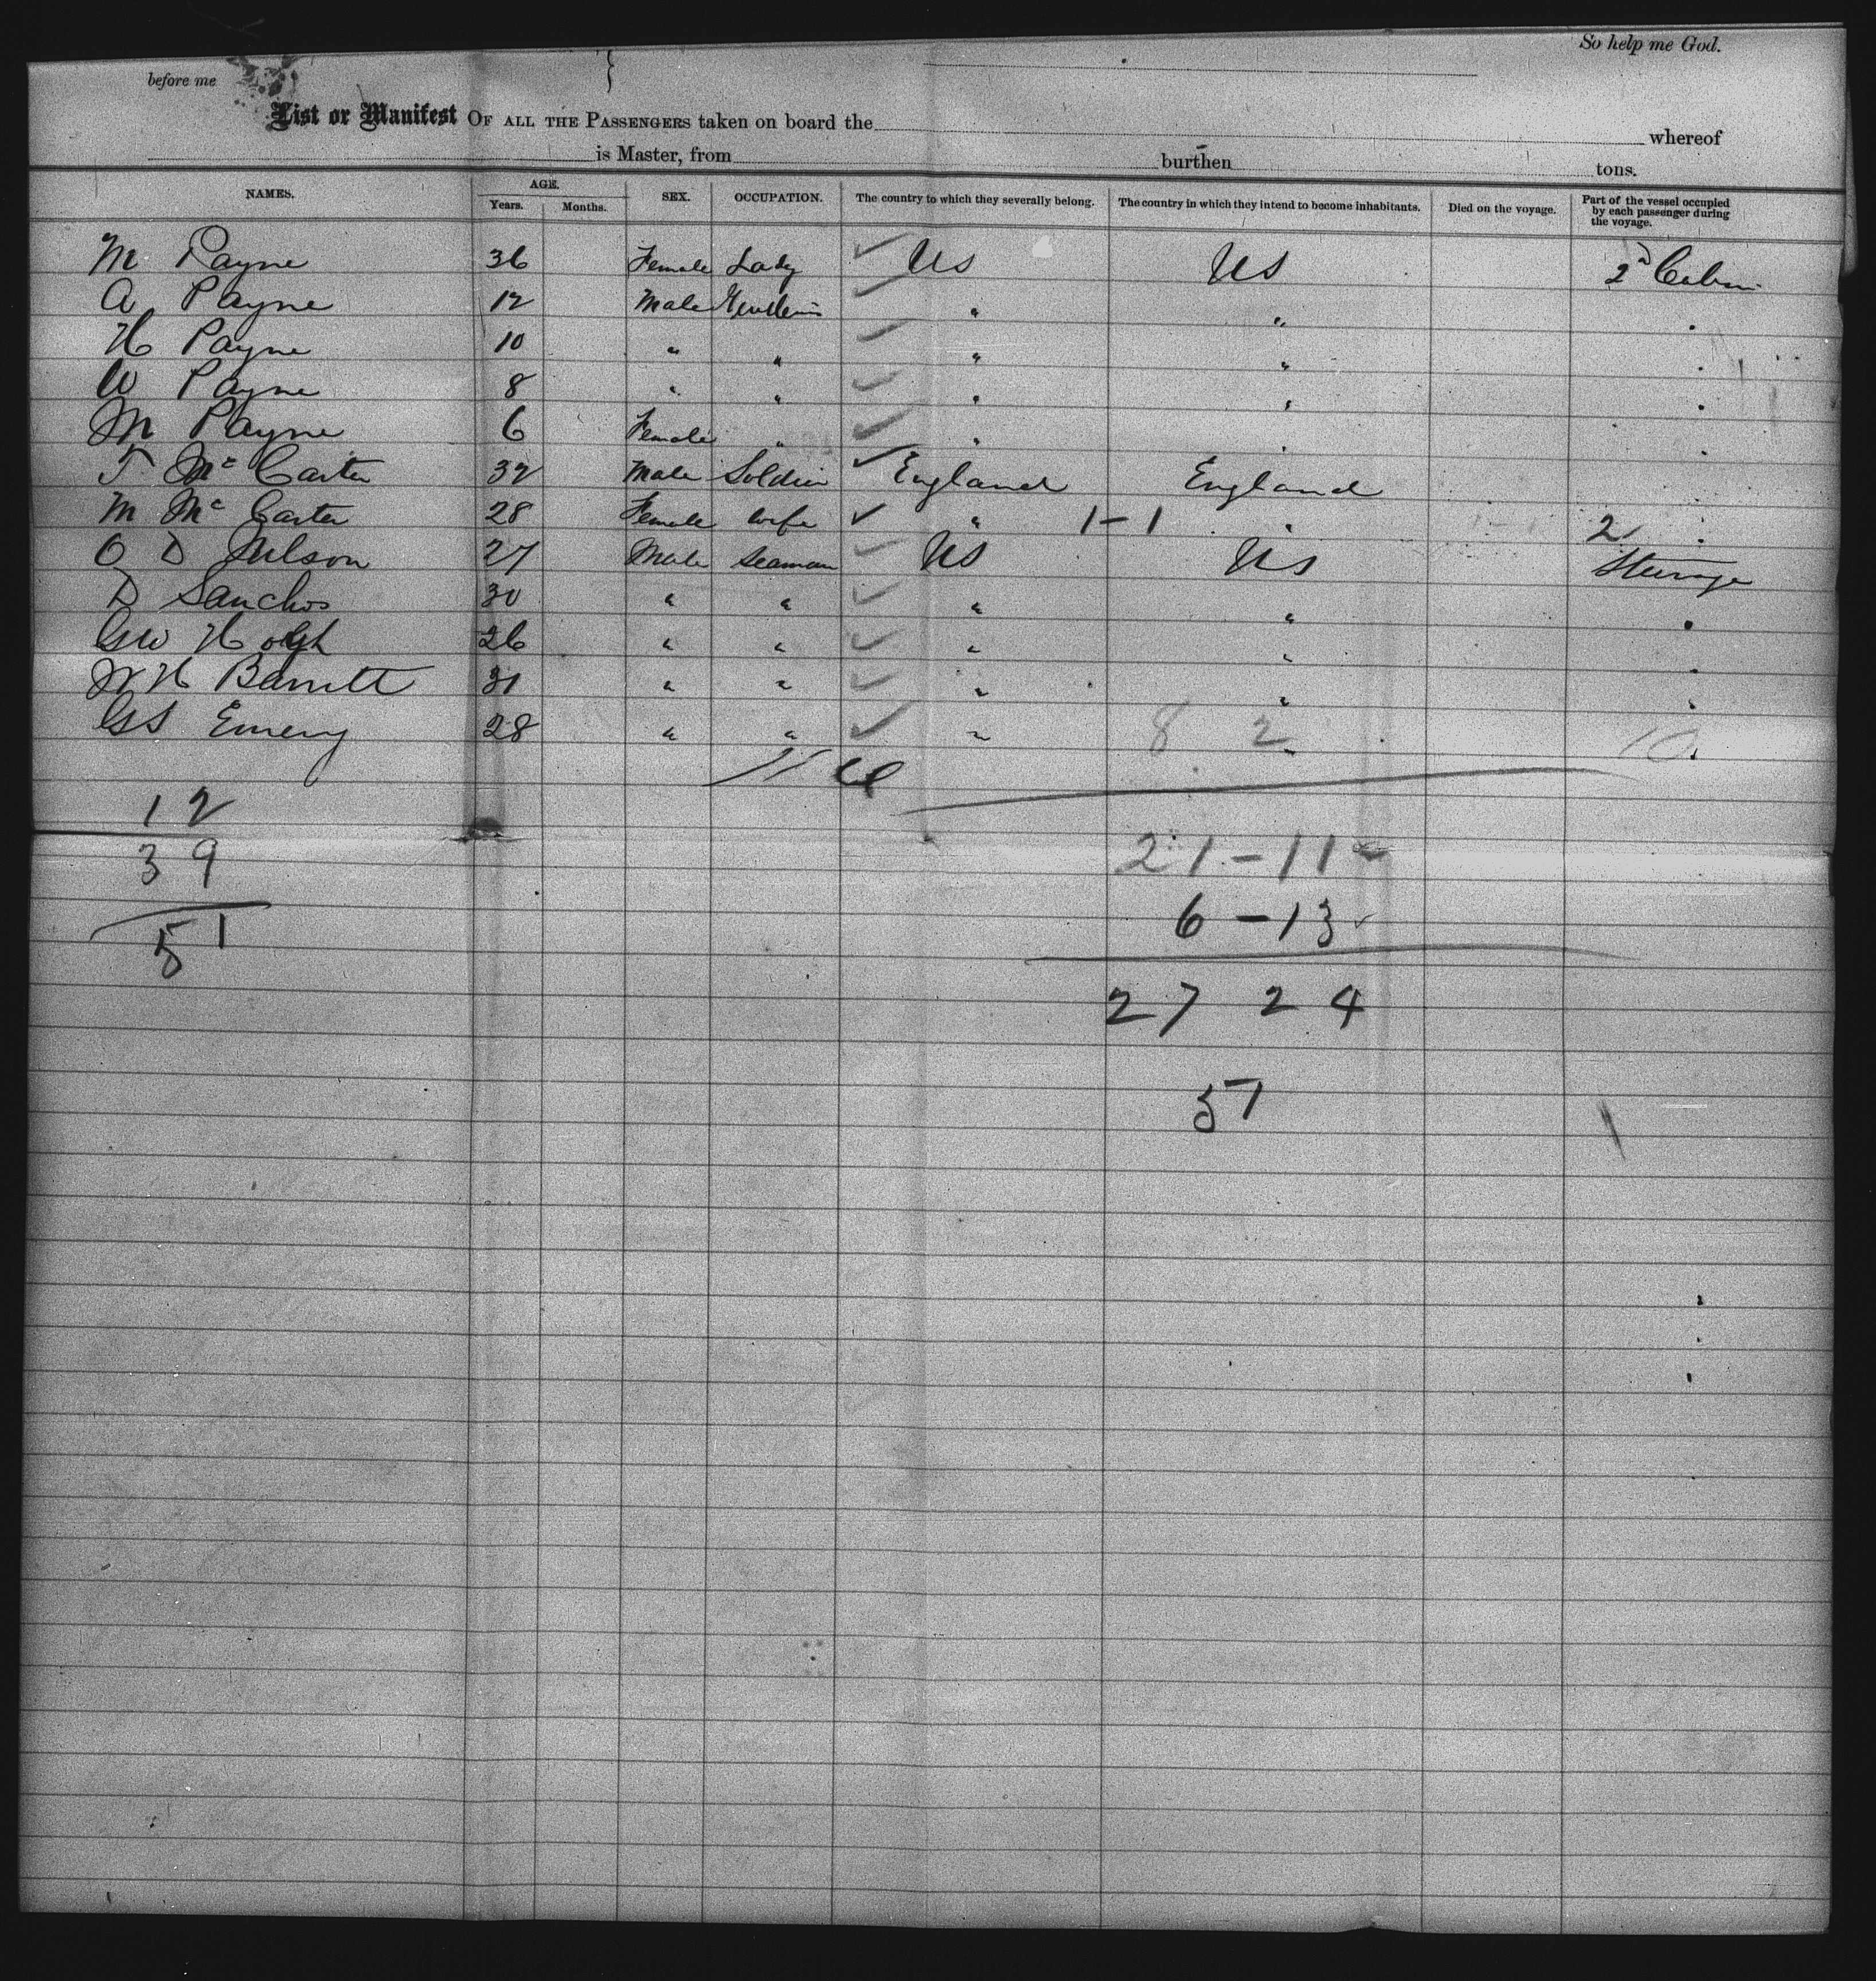 So help me God.
before me }
List or Manifest OF ALL THE PASSENGERS taken on board the whereof
is Master, from burthen tons.
NAMES. AGE. SEX. OCCUPATION. The country to which they severally belong. The country in which they intend to become inhabitants. Died on the voyage. Part of the vessel occupied by each passenger during the voyage.
Years. Months.
M Payne 36 Female Lady ✓ US US 2d Cabin
A Payne 12 Male ✓ " " "
H Payne 10 " " ✓ " " "
W Payne 8 " " ✓ " " "
M Payne 6 Female " ✓ " " "
T Mc Carter 32 Male Soldier ✓ England England
M Mc Carter 28 Female Wife ✓ " 1-1 " 2 "
O D Nilson 27 Male Seaman ✓ US US Steerage
D Sanchos 30 " " ✓ " " "
Geo 26 " " ✓ " " "
W H Barrett 31 " " ✓ " " "
GS Emery 28 " " ✓ " 8 2 " 10 "
12
39 21-11
51 6-13
27 24
51